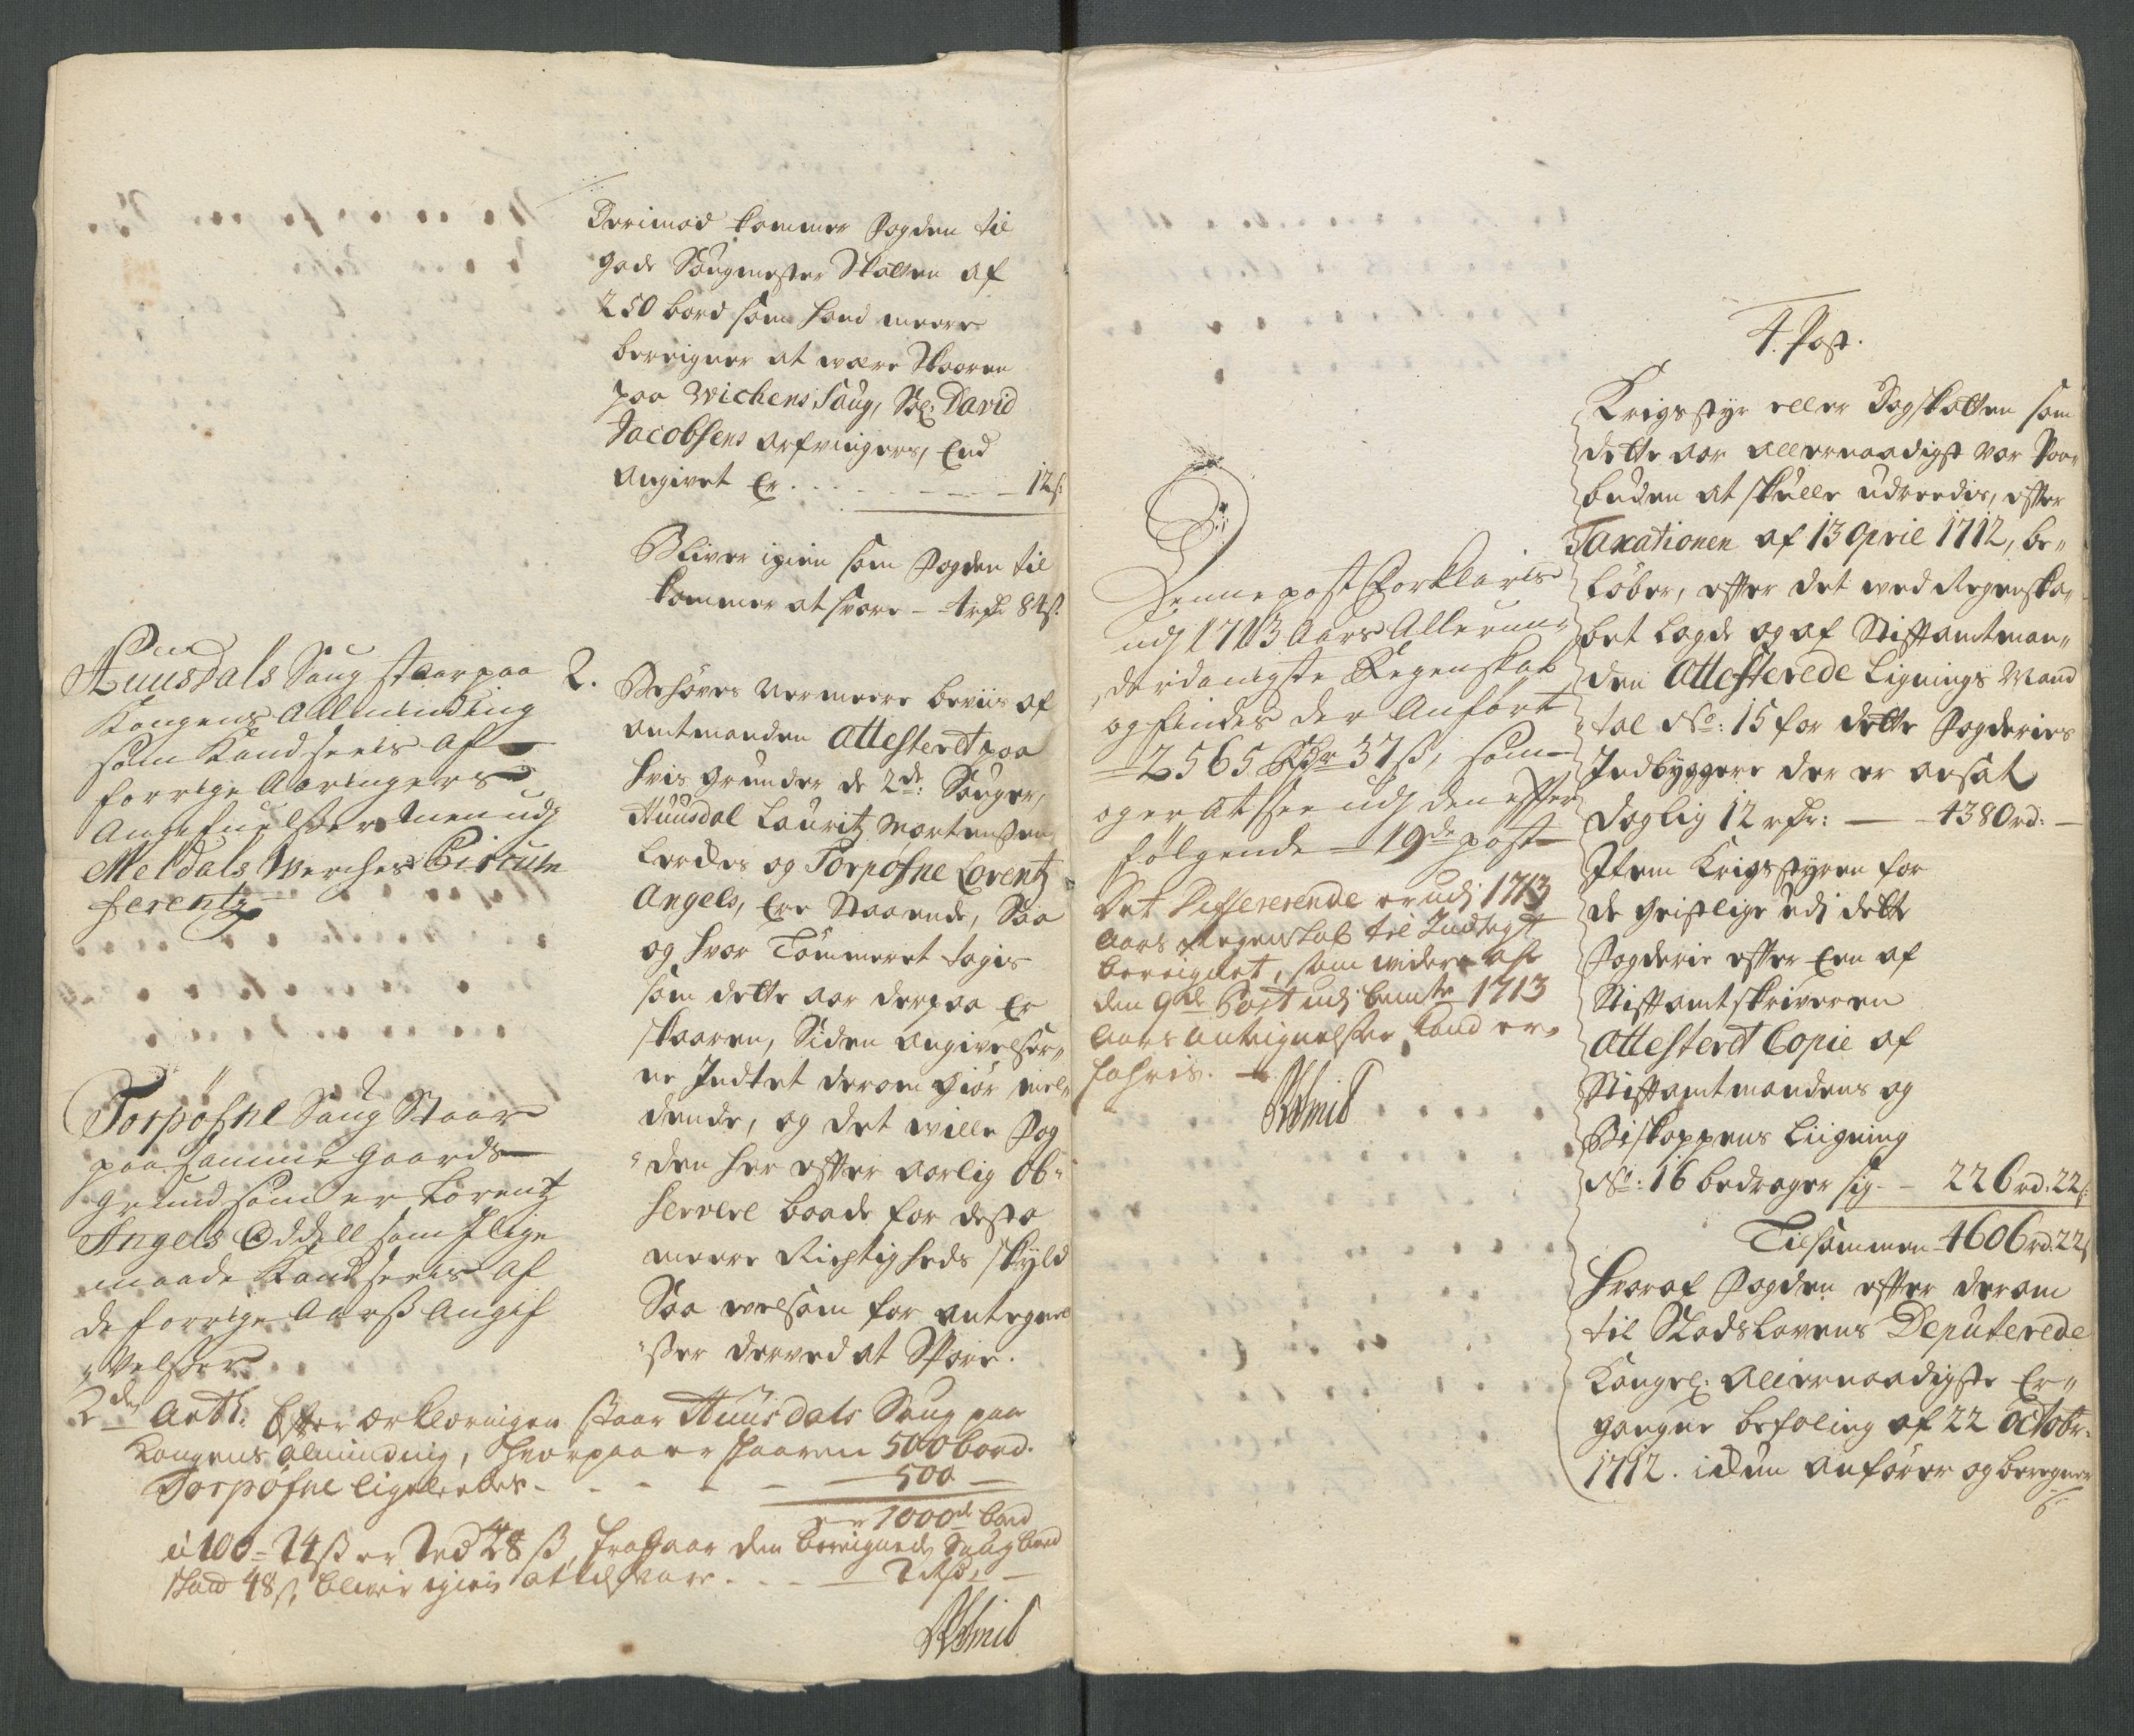 Derimod kommer Fogden til
gode Saugmester Skatten af
250 bord som hand meere
beregner at være Skaaren
paa Wichens Saug, Sl: David
Jacobsens arfvingers, End
angivet Er. - - - - 12 s:
Bliver igien som Fogden til
kommer at svare - 4 rdr 84 s.
Huusdals Saug staar paa
Kongens Allminding
som Kand sees af
forrige Aaringers
Angifvelser Men udj
Meldals Werches Circum
ferentz
2. Behøves nermeere beviis af
amtmanden Attesteret paa
hvis grunder de 2de: Sauger,
Huusdal Lauritz Mortensen
Lerches og Torpøsne Lorentz
Angels, Ere Staaende, Saa
og hvor Tømmeret tagis
som dette aar derpaa Er
skaaren, Siden angivelser„
ne Indtet derom giør mel„
dende, og det wille Fog
„den her efter aarlig Ob„
servere baade for desto
meere Richtigheds skyld
Saa welsom for antegnel
„ser derved at Spare.
Torpøsne Saug Staar
paa samme Gaards
grund som er Lorentz
Angels Oddell som Ilige
maade Kand sees af
de forrige Aars Angif
„velser
2de Art: Efter erklæringen staar Huusdals Saug paa
Kongens alminding, hvorpaa er skaaren 500 bord.
Torpøsne ligeledes - - - - 500 -
er 1000de bord
a 100 - 24 ß er 2 rd 48 ß, fragaar den beregnede Saug bord
skatt 48 s, blever igien at tilsvare - - - 2 rdr -
Denne post Forklaris
udj 1713 Aars Allerun„
derdanigste Regenskab
og findes der Anført
2565 Rdr 37 ß, som
og er at see udj den efter
følgende 19de post
Det Differerende er udj 1713
Aars Regenskab til Indtegt
beregnet, som widere af
den 9de Post udj bemte 1713
Aars antegnelser kand er„
fahris.
4. Post.
Krigsstyr eller Dagskatten som
dette aar allernaadigst var Paa„
buden at skulle udreedis, efter
Taxationen af 13 April 1712, be„
løber, efter det wed Regenska„
bet lagde og af Stiftamtman„
den Attesterede Lignings Mand
tal No: 15 for dette Fogderies
Indbyggere der er ansat
daglig 12 rdr: - 4380 rd: -
Item Krigsstyren for
de geistlige udj dette
Fogderie efter Een af
Stiftamtskriveren
Attesteret Copie af
Stiftamtmandens og
Biskoppens Liigning
No: 16 bedrager sig - 226 rd. 22 s:
Tilsammen - 4606 rd. 22 s
hvoraf Fogden efter derom
til Slodslovens Deputerede
Kongel: Allernaadigste Er„
gangne befaling af 22 Octobr:
1712. ickun anfører og beregner